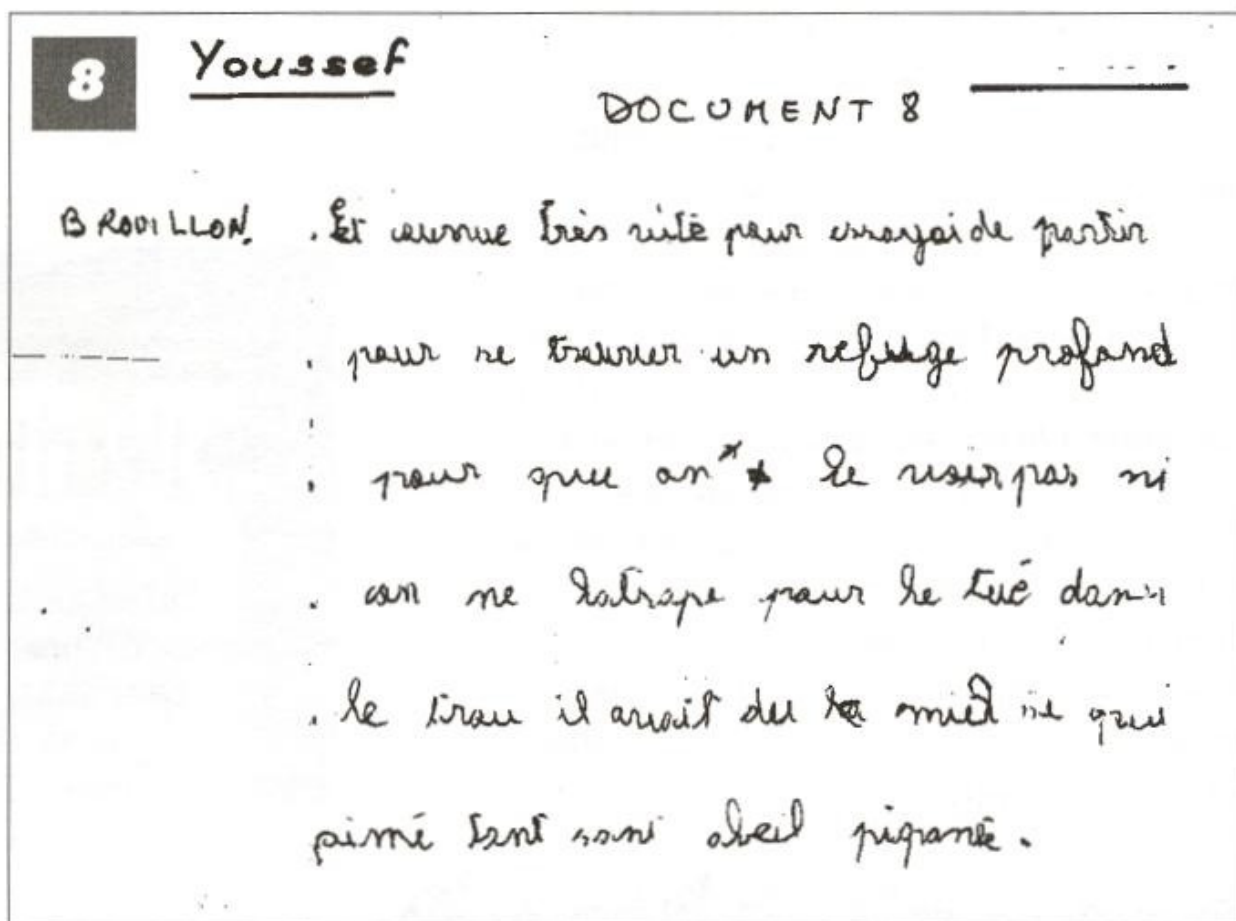 8 Youssef
DOCUMENT 8
BROUILLON. . Et courrue très vité pour essayai de partir
. pour se trouvier un refuge profond
. pour que on le voir pas ni
. on ne latrape pour le tué dans
. le trou il avait du miel qui
aimé tant sant abeil piqanté.